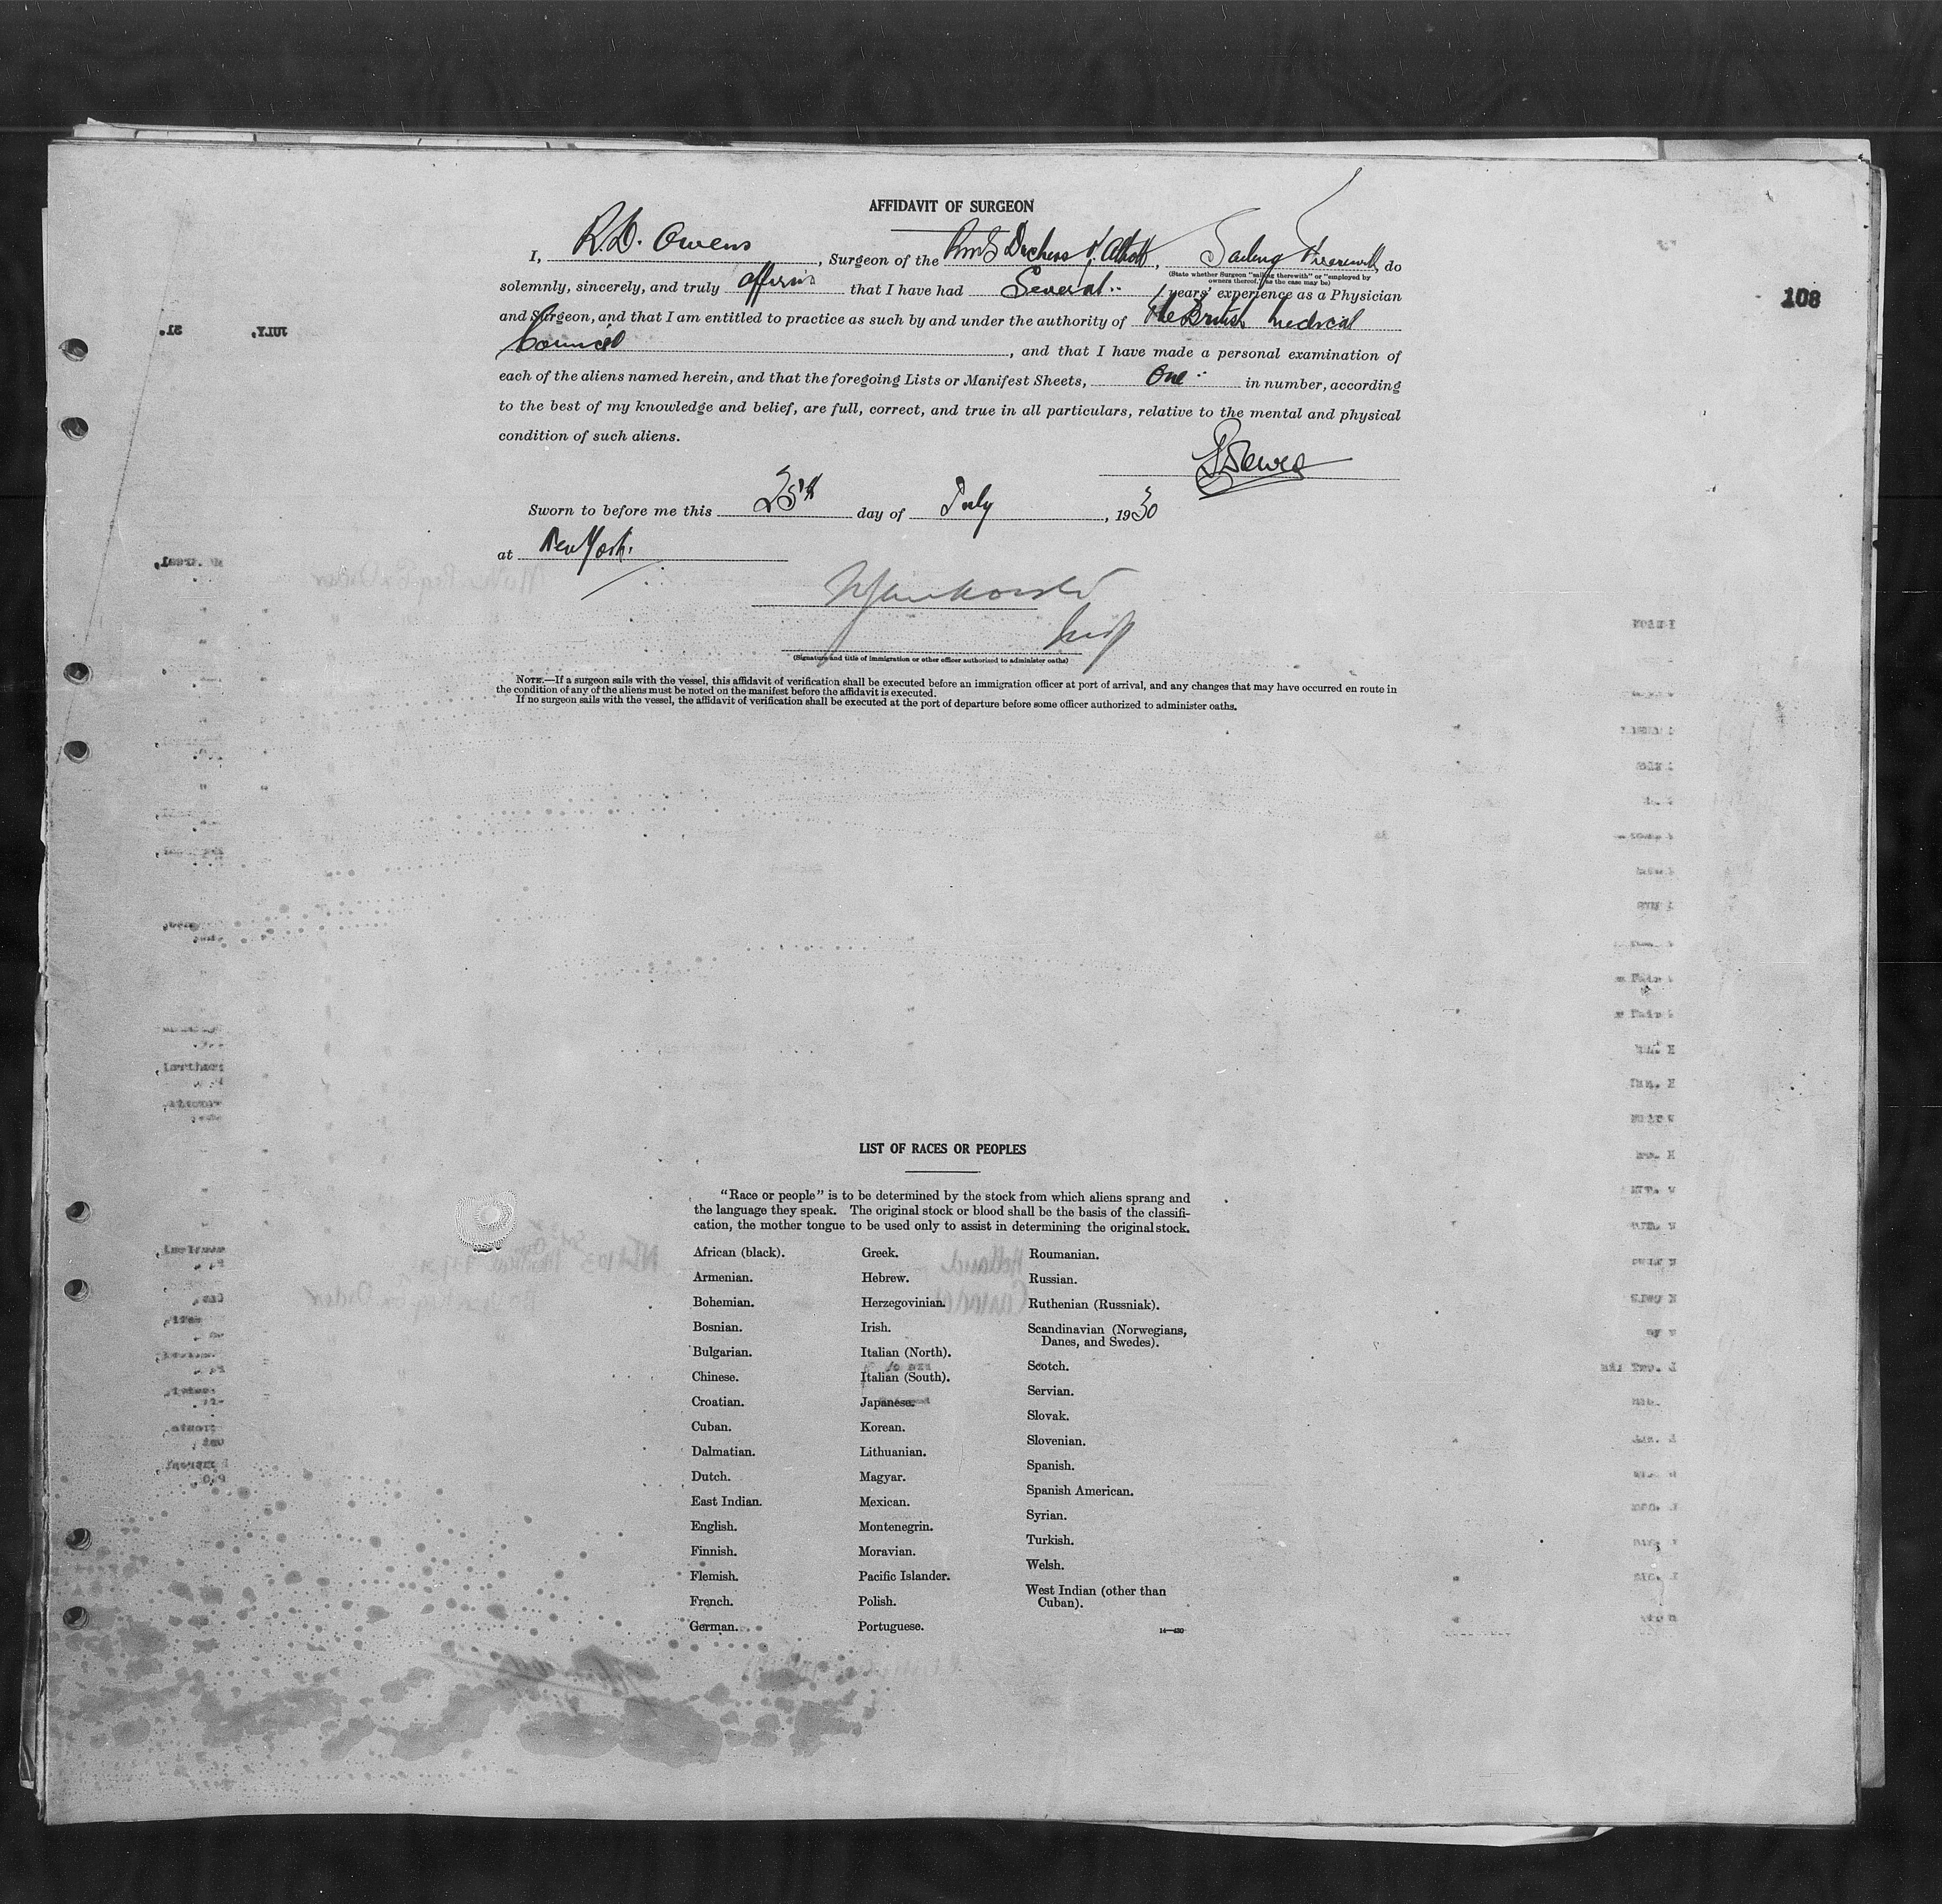 AFFIDAVIT OF SURGEON
I, R.D. Owens, Surgeon of the RMS Duchess of Atholl, Sailing Therewith, do
(State whether Surgeon "sailing therewith" or "employed by
owners thereof," as the case may be)
solemnly, sincerely, and truly affirm that I have had Several years' experience as a Physician
108
and Surgeon, and that I am entitled to practice as such by and under the authority of The British Medical
Council, and that I have made a personal examination of
each of the aliens named herein, and that the foregoing Lists or Manifest Sheets, One in number, according
to the best of my knowledge and belief, are full, correct, and true in all particulars, relative to the mental and physical
condition of such aliens.
Sworn to before me this 25th day of July, 1930
at New York.
(Signature and title of immigration or other officer authorized to administer oaths)
NOTE.—If a surgeon sails with the vessel, this affidavit of verification shall be executed before an immigration officer at port of arrival, and any changes that may have occurred en route in
the condition of any of the aliens must be noted on the manifest before the affidavit is executed.
If no surgeon sails with the vessel, the affidavit of verification shall be executed at the port of departure before some officer authorized to administer oaths.
LIST OF RACES OR PEOPLES
"Race or people" is to be determined by the stock from which aliens sprang and
the language they speak. The original stock or blood shall be the basis of the classifi-
cation, the mother tongue to be used only to assist in determining the original stock.
African (black).
Armenian.
Bohemian.
Bosnian.
Bulgarian.
Chinese.
Croatian.
Cuban.
Dalmatian.
Dutch.
East Indian.
English.
Finnish.
Flemish.
French.
German.
Greek.
Hebrew.
Herzegovinian.
Irish.
Italian (North).
Italian (South).
Japanese.
Korean.
Lithuanian.
Magyar.
Mexican.
Montenegrin.
Moravian.
Pacific Islander.
Polish.
Portuguese.
Roumanian.
Russian.
Ruthenian (Russniak).
Scandinavian (Norwegians,
Danes, and Swedes).
Scotch.
Servian.
Slovak.
Slovenian.
Spanish.
Spanish American.
Syrian.
Turkish.
Welsh.
West Indian (other than
Cuban).
14—430